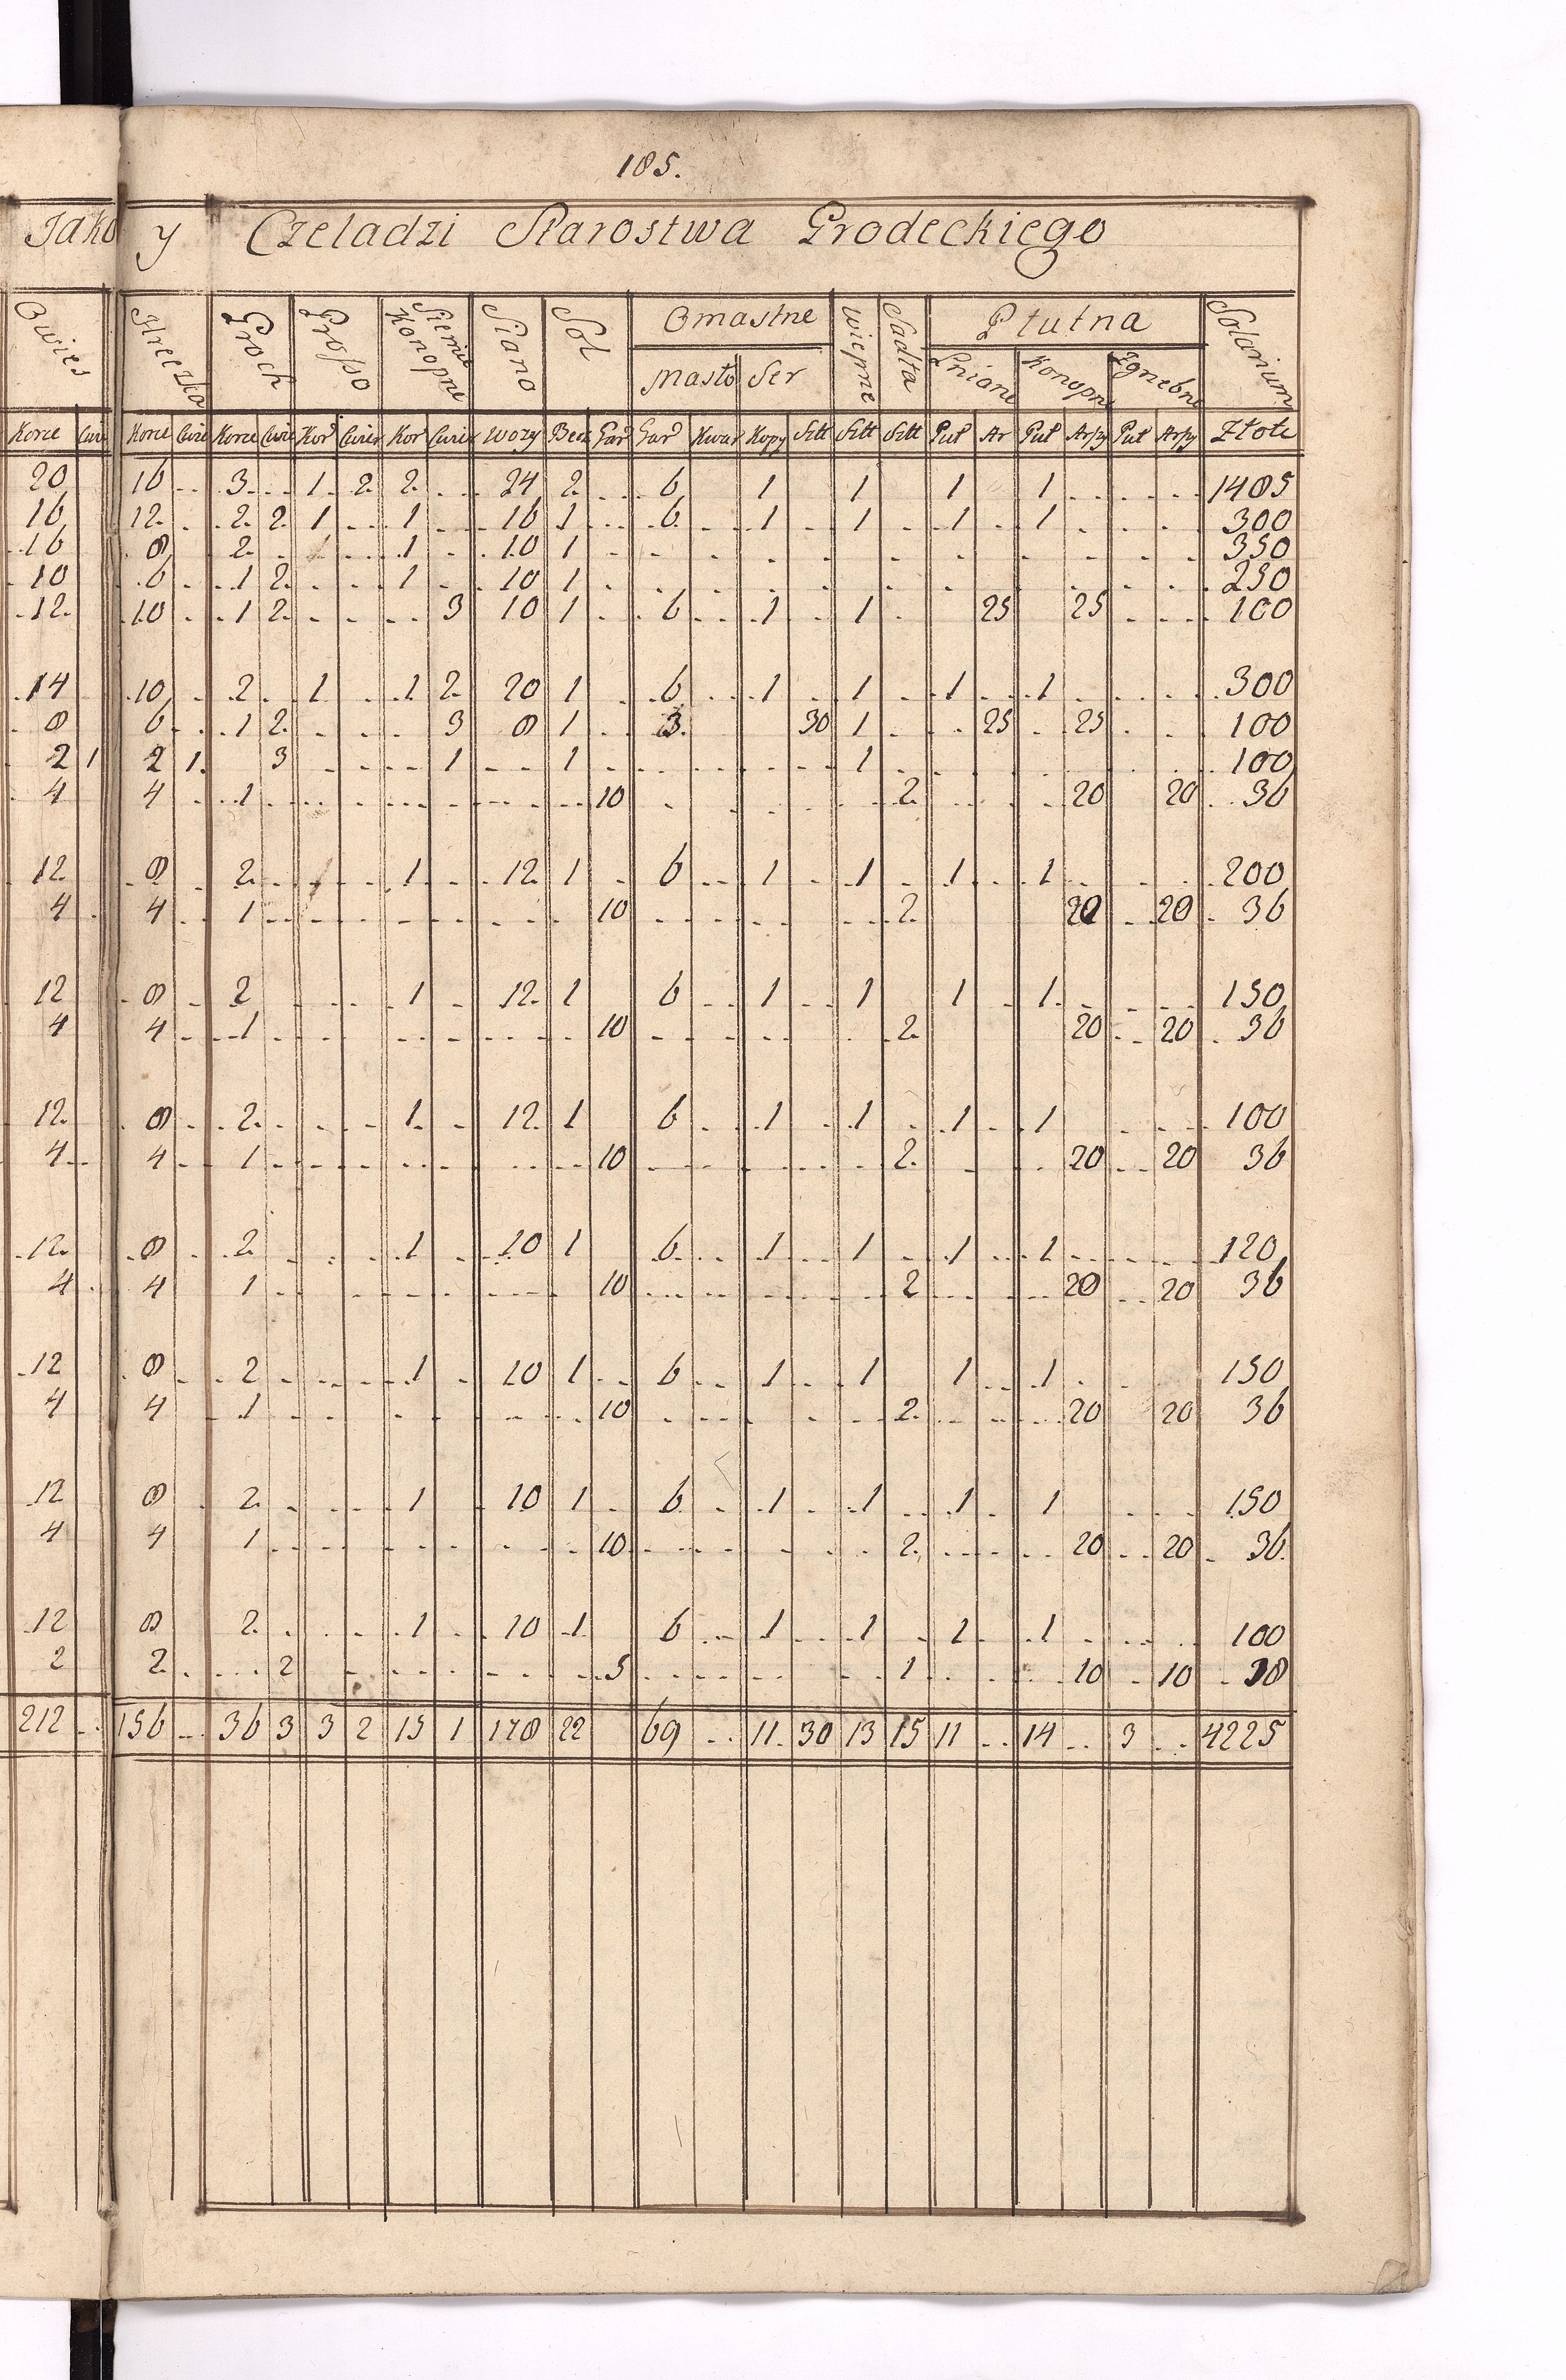 185.
Jako y Czeladzi Starostwa Grodeckiego
Owies Hreczka Groch Prosso Siemie Konopne Siano Sol Omastne Wieprze Sadła Płutna Solarium
Masło Ser Lniane Konopne Zgrzebne
Korce Cwie Korce Cwie Korce Cwie Kor Cwier Kor Cwier Wozy Becz Gar Gar Kwar Kopy Sztt Sztt Sztt Puł Ar Puł Arszy Puł Arszy Złote
20 16 3 1 2 2 24 2 6 1 1 1 1 1485
16 12 2 2 1 1 16 1 6 1 1 1 1 300
16 8 2 1 1 10 1 350
10 6 1 2 1 10 1 250
12 10 1 2 3 10 1 6 1 1 25 25 100
14 10 2 1 1 2 20 1 6 1 1 1 1 300
8 6 1 2 3 8 1 3 30 1 25 25 100
2 1 2 1 3 1 1 1 100
4 4 1 10 2 20 20 36
12 8 2 1 1 12 1 6 1 1 1 1 200
4 4 1 10 2 20 20 36
12 8 2 1 12 1 6 1 1 1 1 150
4 4 1 10 2 20 20 36
12 8 2 1 12 1 6 1 1 1 1 100
4 4 1 10 2 20 20 36
12 8 2 1 10 1 6 1 1 1 1 120
4 4 1 10 2 20 20 36
12 8 2 1 10 1 6 1 1 1 1 150
4 4 1 10 2 20 20 36
12 8 2 1 10 1 6 1 1 1 1 150
4 4 1 10 2 20 20 36
12 8 2 1 10 1 6 1 1 1 1 100
2 2 2 5 1 10 10 18
212 156 36 3 3 2 15 1 178 22 69 11 30 13 15 11 14 3 4225